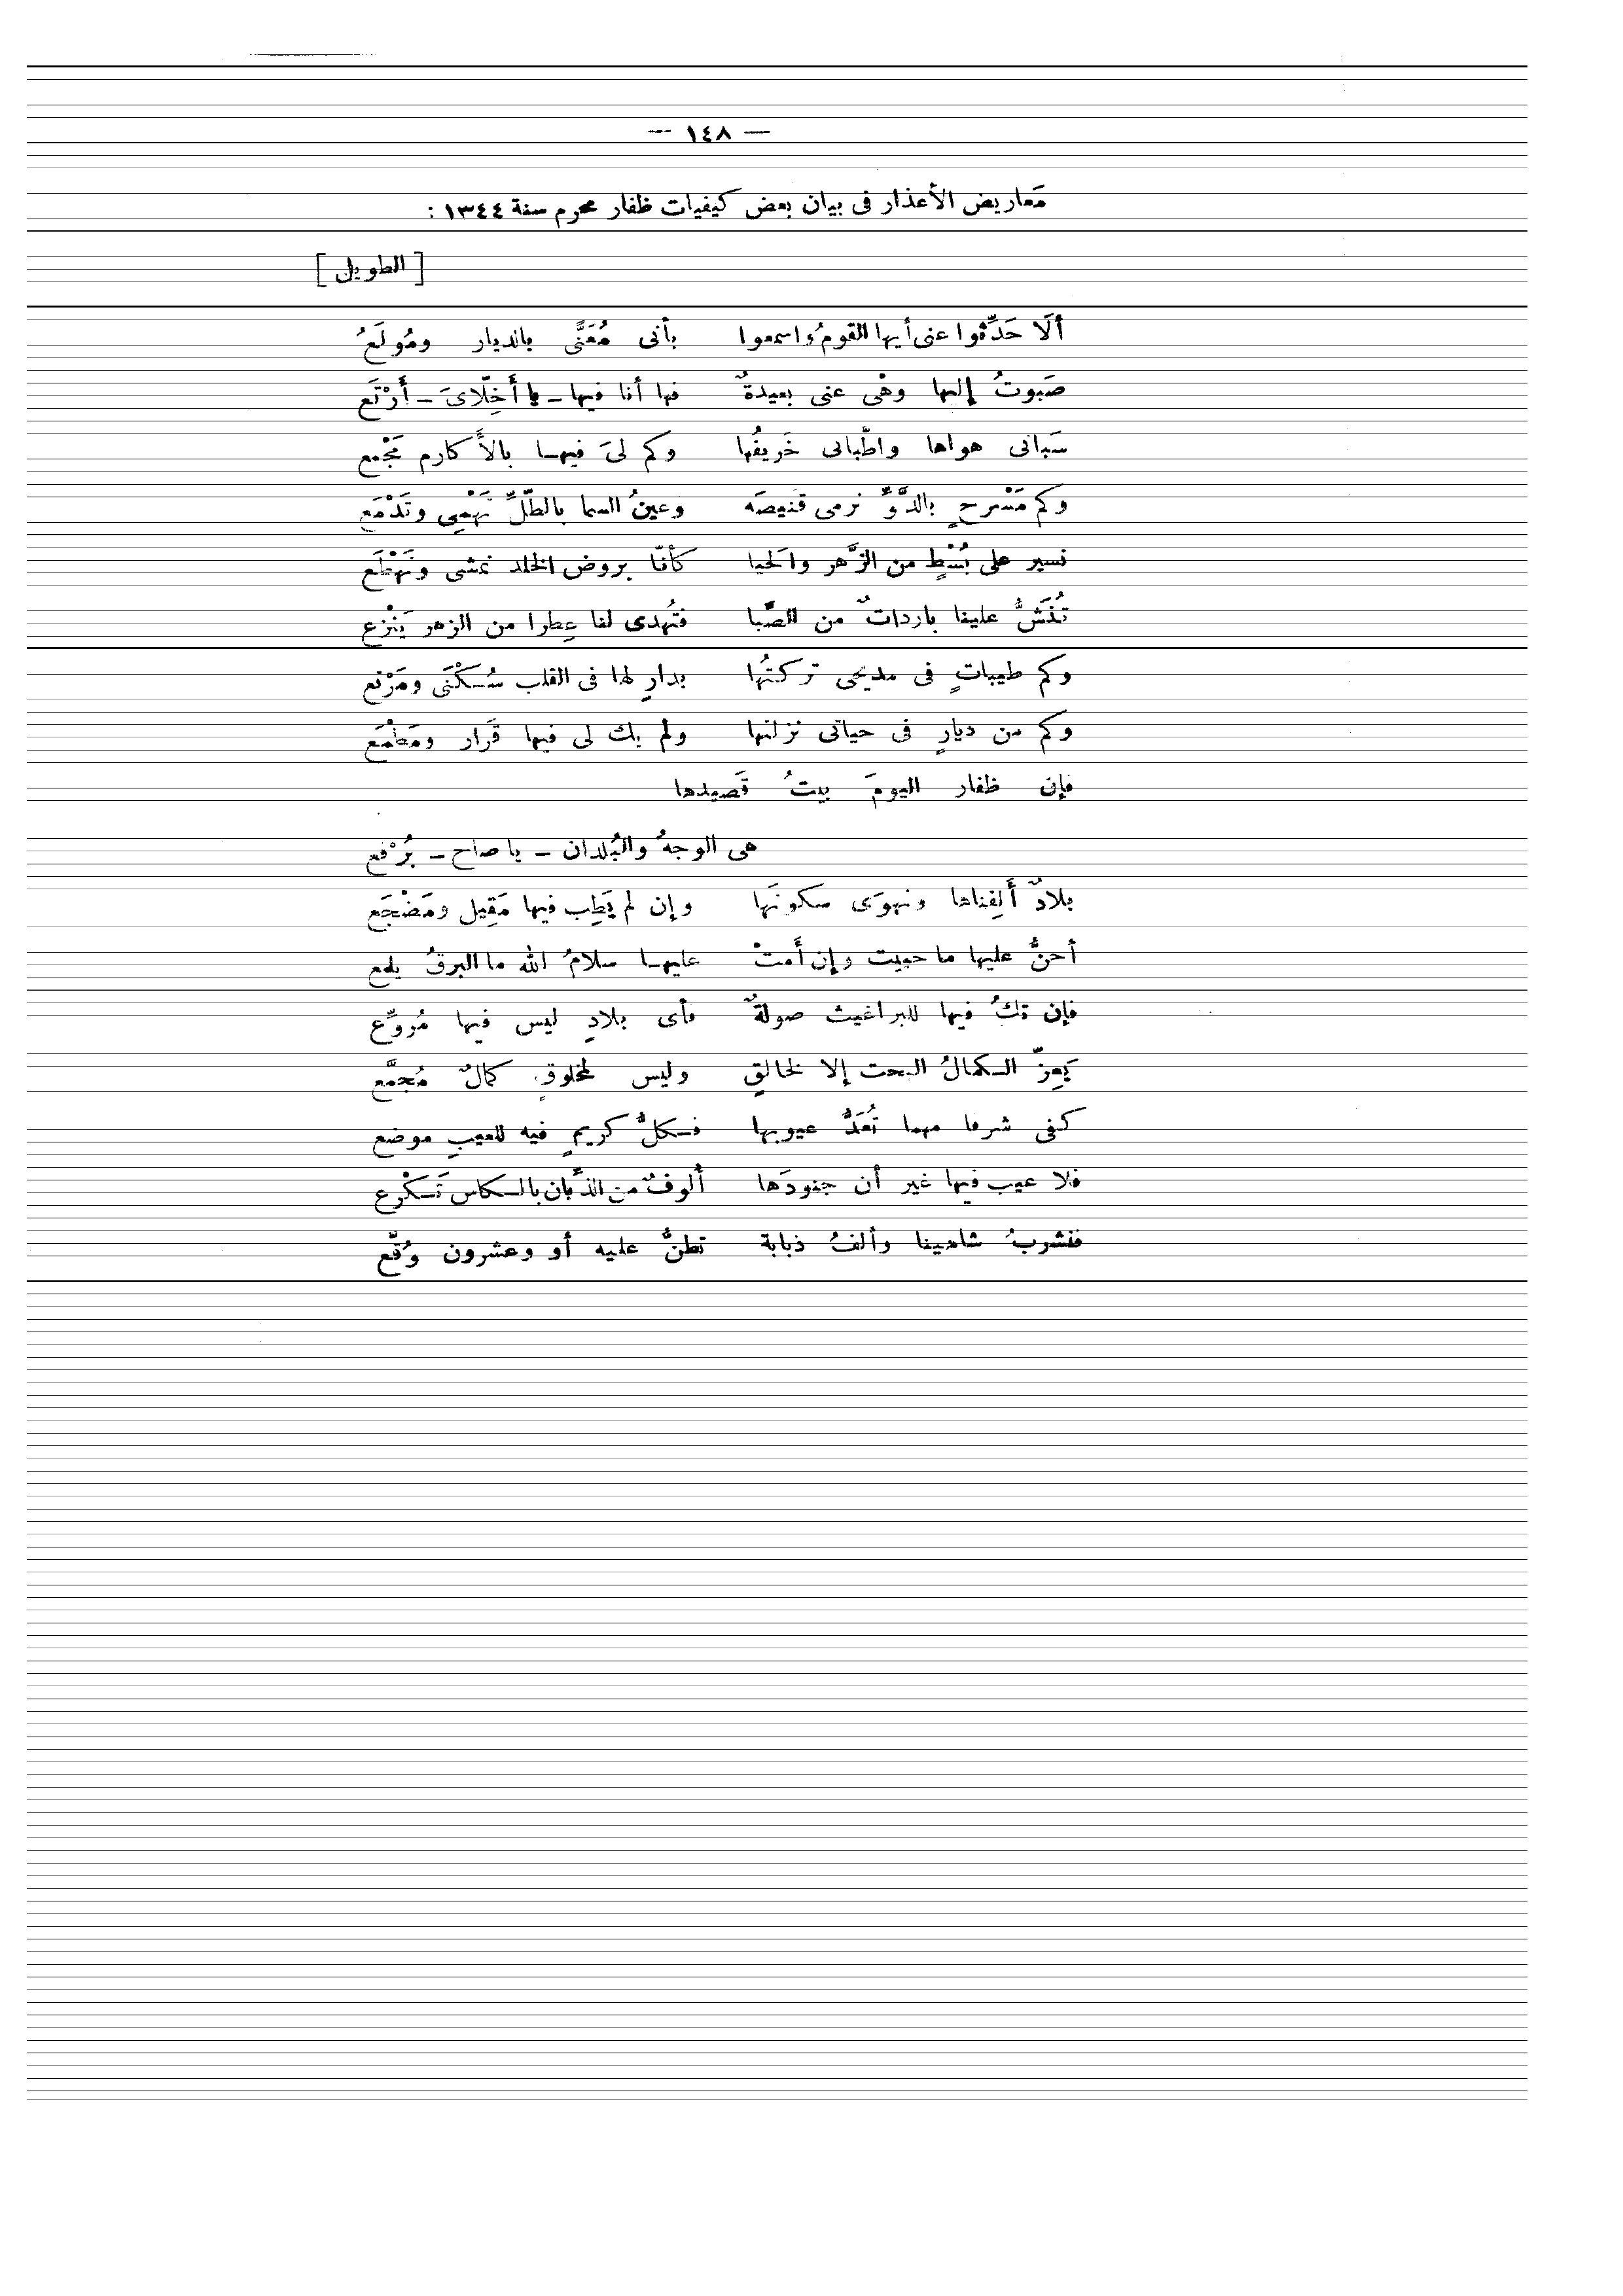 — ١٤٨ —
مَعاريض الأعذار فى بيان بعض كيفيات ظفار محرم سنة ١٣٤٤ :
[ الطويل ]
ألَا حَدِّثوا عنى أيها القومُ واسمعوا بأنى مُعَنًّى بالديار ومُولَعُ
صَبوتُ إليها وهْى عنى بعيدةٌ فها أنا فيها – يا أَخِلّاىَ – أَرْتَع
سَبانى هواها واطَّبانى خَريفُها وكم لىَ فيها بالأَكارم مَجْمع
وكم مَسْرحٍ بالدَّوِّ نرمى قنيصَه وعينُ السما بالطَّلِّ تَهْمِى وتَدْمَع
نسير على بُسْطٍ من الزَّهر والحَيا كأنّا بروض الخلد نمشى ونَهْطَع
تُنَشُّ علينا بارداتٌ من الصَّبا فتُهدى لنا عِطرا من الزهر يَنْزع
وكم طيباتٍ فى مديحى تركتُها بدارٍ لها فى القلب سُكْنَى ومَرْتع
وكم من ديارٍ فى حياتى نزلتها ولم يك لى فيها قَرَار ومَطْمَع
فإن ظفار اليومَ بيتُ قَصيدها
هى الوجهُ والبُلدان – يا صاح – بُرْقع
بلادٌ أَلِفناها ونهوَى سكونَها وإن لم يَطِب فيها مَقِيل ومَضْجَع
أحنُّ عليها ما حييت وإن أَمتْ عليها سلامُ الله ما البرقُ يلمع
فإن تكُ فيها للبراغيث صولةٌ فأى بلادٍ ليس فيها مُروِّع
يَعِزّ الكمالُ البحت إلا لخالقٍ وليس لمخلوقٍ كمالٌ مُجمَّع
كفى شرفا مهما تُعَدُّ عيوبها فكلُّ كريمٍ فيه للعيبِ موضع
فلا عيب فيها غير أن جنودَها ألوفٌ من الذَّبان بالكاس تَكْرع
فنشربُ شاهينا وألفُ ذبابة تطنُّ عليه أو وعشرون وُقَّع